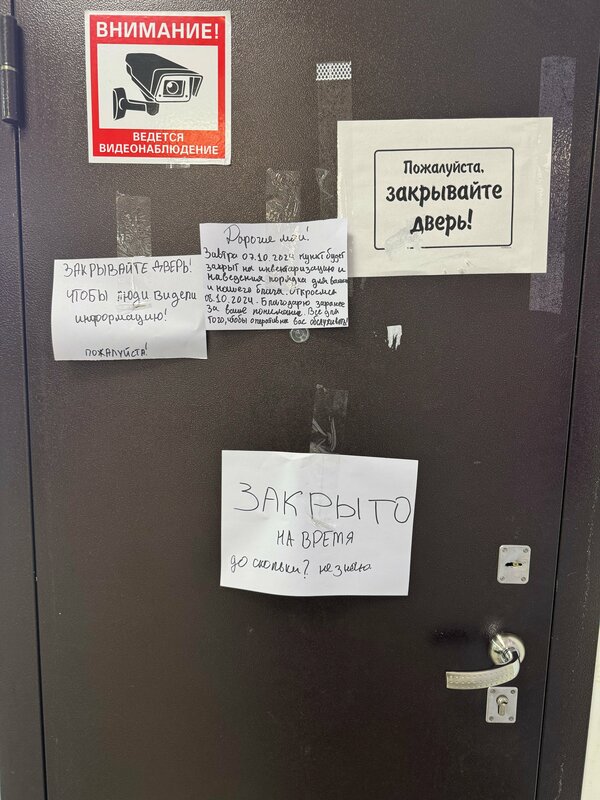 ВНИМАНИЕ!
ВЕДЕТСЯ
ВИДЕОНАБЛЮДЕНИЕ
Пожалуйста,
закрывайте
дверь!
Дорогие мои!
Завтра 07.10.2024 пункт будет
закрыт на инвентаризацию и
наведения порядка для вашего
и нашего блага. Откроемся
08.10.2024. Благодарю заранее
За ваше понимание. Всё для
того, чтобы оперативно вас обслуживать!
ЗАКРЫВАЙТЕ ДВЕРЬ!
ЧТОБЫ ЛЮДИ ВИДЕЛИ
ИНФОРМАЦИЮ!
ПОЖАЛУЙСТА!
ЗАКРЫТО
НА ВРЕМЯ
до скольки? не знаю